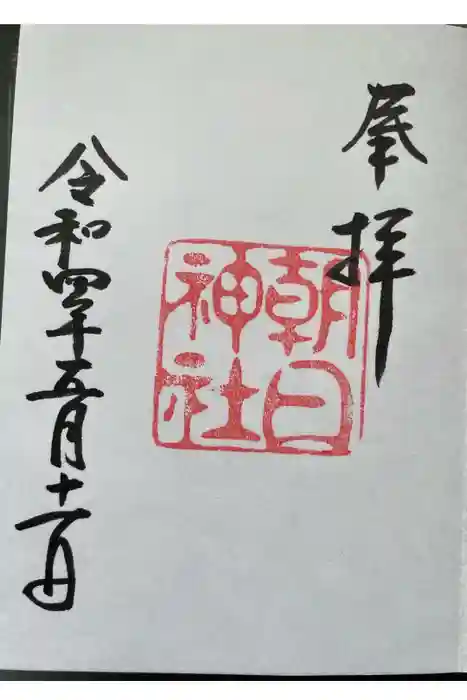 奉拝
朝日
神社
令和四年五月十一日